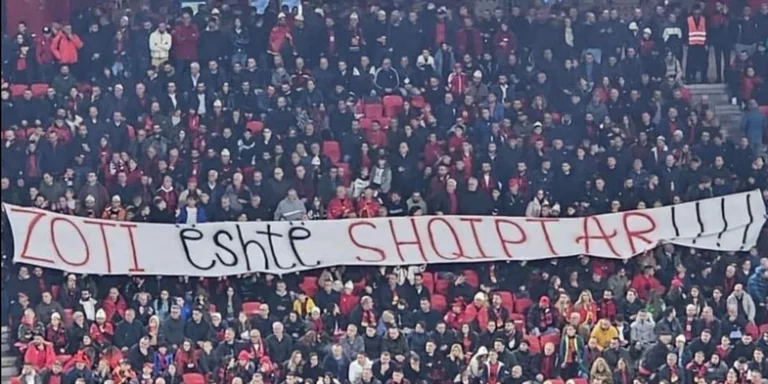 ZOTI është SHQIPTAR!!!!